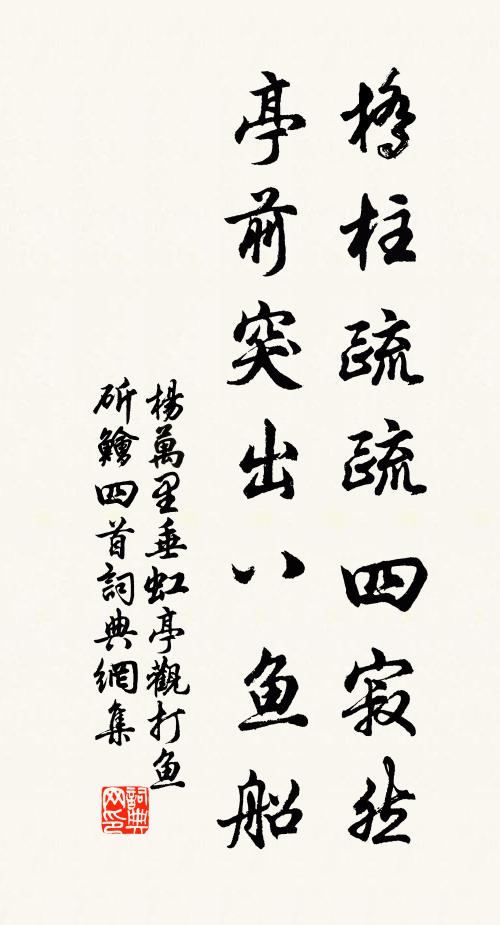 橋柱疏疏四寂然
亭前突出八魚船
楊萬里垂虹亭觀打魚
斫鱠四首詞典網集
詞典網印